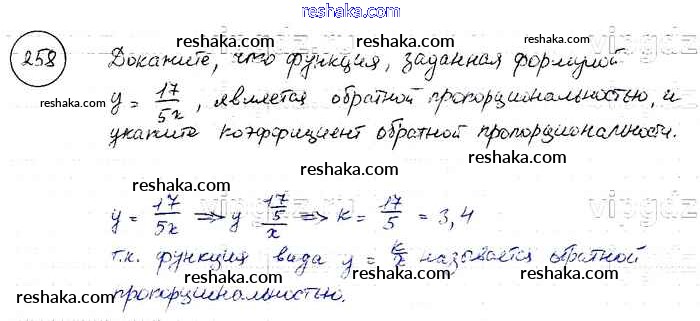 reshaka.com
258 Докажите, что функция, заданная формулой
y = 17/5x, является обратной пропорциональностью, и
укажите коэффициент обратной пропорциональности.
y = 17/5x ⇒ y 17/5/x ⇒ к = 17/5 = 3,4
т.к. функция вида y = к/x называется обратной
пропорциональностью.
reshaka.com reshaka.com reshaka.com
vipgdz
reshaka.com reshaka.com reshaka.com
reshaka.com reshaka.com reshaka.com
vipgdz.com vipgdz
reshaka.com reshaka.com reshaka.com
reshaka.com